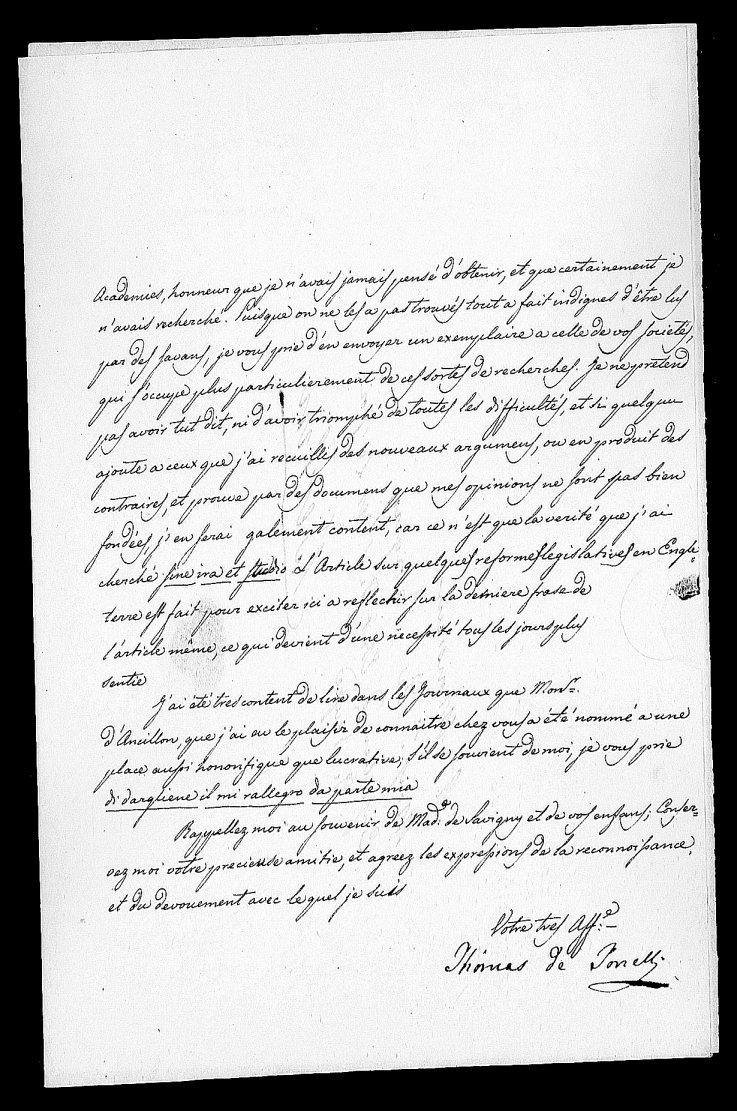 Academies, honneur que je n'avais jamais pensé d'obtenir, et que certainement je
n'avais recherché. Puisque on ne les a pas trouvés tout a fait indignes d'être lus
par des savans, je vous prie d'en envoyer un exemplaire a celle de vos societés,
qui s'occupe plus particulierement de ces sortes de recherches. Je ne prétend
pas avoir tut dit, ni d'avoir triomphé de toutes les difficultés, et si quelqun
ajoute a ceux que j'ai recueilles des nouveaux argumens, ou en produit des
contraires, et prouve par des documens que mes opinions ne sont pas bien
fondées, j'en serai galement content, car ce n'est que la verité que j'ai
cherché sine ira et studio L'Article sur quelques reformes legislatives en Engle=
terre est fait pour exciter ici a reflectir sur la derniere frase de
l'article même, ce qui devient d'une necessité tous les jours plus
sentie
J'ai été tres content de lire dans les Journaux que Monsr.
d'Ancillon, que j'ai au le plaisir de connaitre chez vous a été nommé a une
place aussi honorifique que lucrative; s'il se souvient de moi, je vous prie
di dargliene il mi rallegro da parte mia
Rappellez moi au souvenir de Made. de Savigny et de vos enfans; Conser=
vez moi vôtre precieuse amitie, et agreez les expressions de la reconnoissance,
et du devouement avec lequel je suis
Votre tres Aff.e
Thomas de